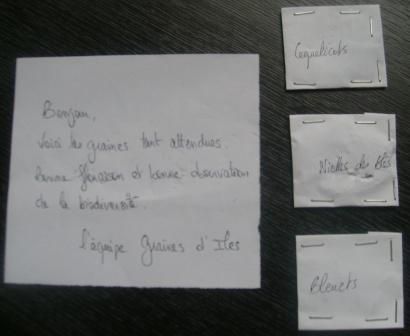 Bonjour,
Voici les graines tant attendues.
Bonne floraison et bonne observation
de la biodiversité.
l'équipe Graines d'Iles
Coquelicots
Nielles des Blés
Bleuets